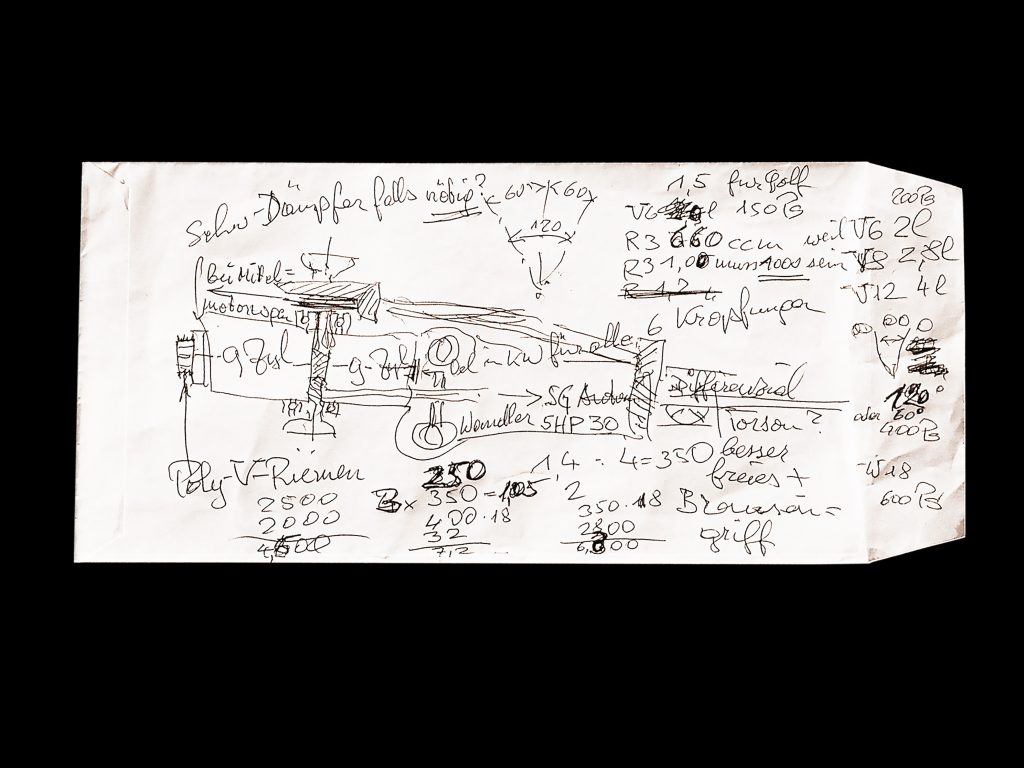 Schw-Dämpfer falls nötig?
60° 60
120
1,5 für Golf
V6 150 PS
R3 660 ccm weil
R3 1,00 muss 1000 sein
R 1,2
200 PS
V6 2l
V8 2,8l
V12 4l
bei Mittel=
motorwagen
6 Kröpfungen
-9 Zyl
-9-Zyl
in KW für alle
120°
oder 60°
400 PS
-W18
600 PS
Differenzial
Torson?
5G
Wandler 5HP30
Poly-V-Riemen
250
1,4 : 4=350
besser
freies +
griff
2500
2000
4,500
350 = 1,05
400.18
32
7,2
2
350.18
2800
6,300